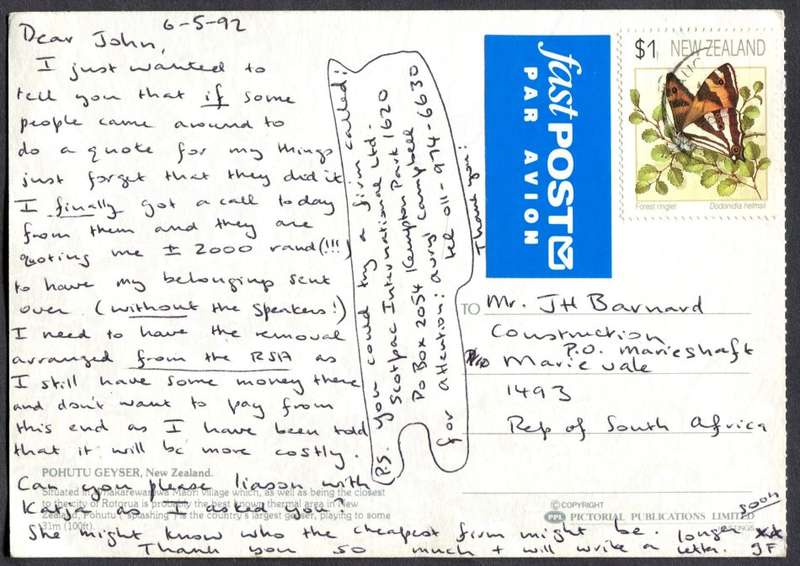 6-5-92
Dear John,
I just wanted to
tell you that if some
people came around to
do a quote for my things
just forget that they did it
I finally got a call today
from them and they are
quoting me ± 2000 rand (!!!)
to have my belongings sent
over (without the speakers!)
I need to have the removal
arranged from the RSA as
I still have some money there
and don't want to pay from
this end as I have been told
that it will be more costly.
Can you please liason with
Katja as I asked you?
She might know who the cheapest firm might be.
Thank you so much + will write a longer letter. soon
JF
P.S. you could try a firm called:
Scotpac International Ltd.
PO Box 2054 Kempton Park 1620
for attention: Avryl Campbell
tel 011-974-6630
Thank you!
POHUTU GEYSER, New Zealand.
Situated in Whakarewarewa Maori village which, as well as being the closest
to the city of Rotorua is probably the best known thermal area in New
Zealand, Pohutu ("splashing") is the country's largest geyser, playing to some
31m (100ft).
fastPOST
PAR AVION
$1 NEW ZEALAND
Forest ringlet
Dodonidia helmsii
TO Mr. JH Barnard
Construction
P.O. Marieshaft
Marievale
1493
Rep of South Africa
© COPYRIGHT
PPL PICTORIAL PUBLICATIONS LIMITED
HASTINGS